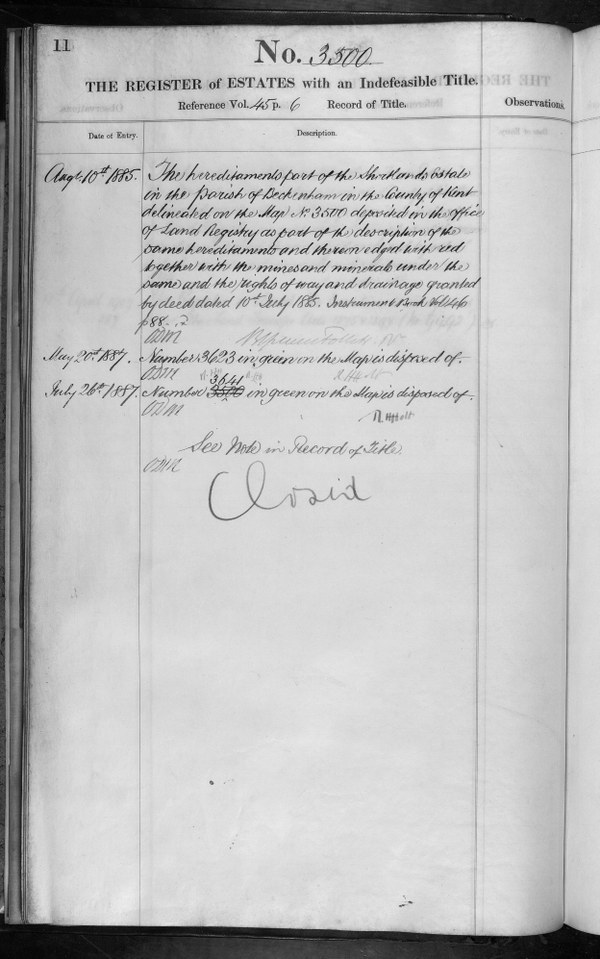 11
No. 3500
THE REGISTER of ESTATES with an Indefeasible Title.
Reference Vol. 45 p. 6 Record of Title.
Observations.
Date of Entry.
Description.
Augt. 10th 1885. The hereditaments part of the Shortlands Estate
in the Parish of Beckenham in the County of Kent
delineated on the Map No. 3500 deposited in the office
of Land Registry as part of the description of the
same hereditaments and thereon edged with red
together with the mines and minerals under the
same and the rights of way and drainage granted
by deed dated 10th July 1885. Instrument Book Vol. 46
p 88
May 20th 1887. Number 3623 in green on the Map is disposed of.
R Holt
3641
July 26th 1887. Number 3500 in green on the Map is disposed of.
R Holt
See Note in Record of Title
Closed